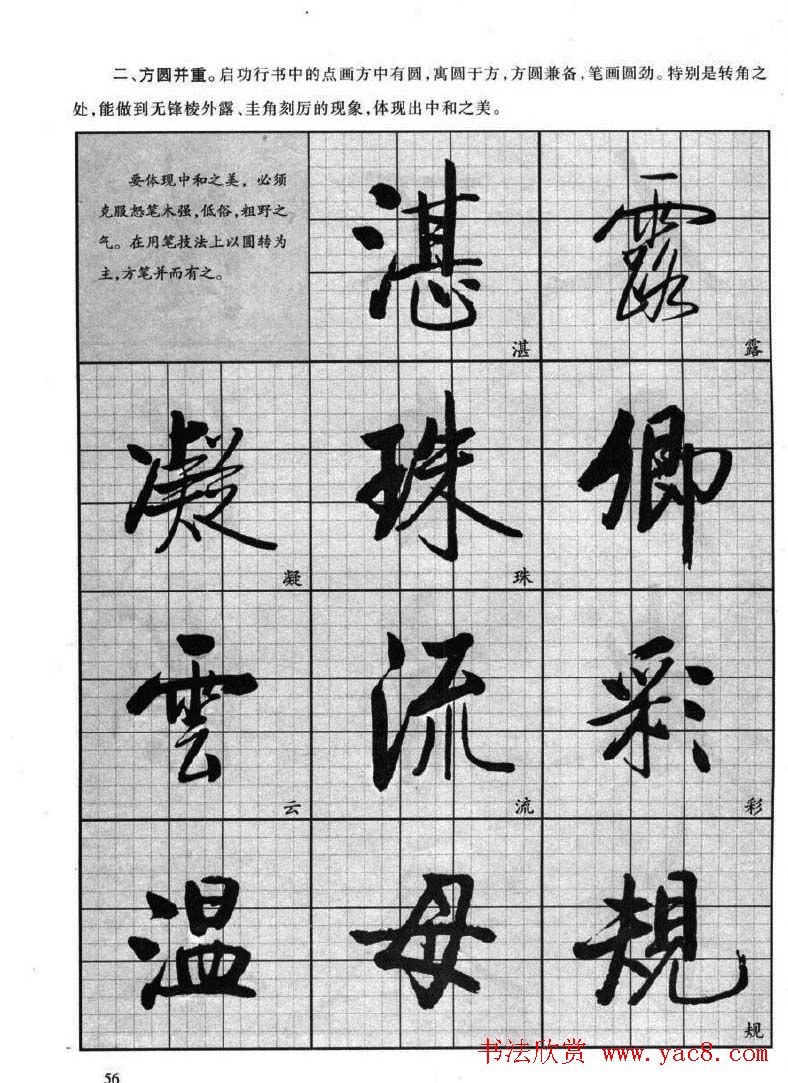 二、方圆并重。启功行书中的点画方中有圆，寓圆于方，方圆兼备，笔画圆劲。特别是转角之
处，能做到无锋棱外露、圭角刻厉的现象，体现出中和之美。
要体现中和之美，必须
克服怒笔木强，低俗，粗野之
气。在用笔技法上以圆转为
主，方笔并而有之。
湛 露
湛 露
凝 珠 卿
凝 珠
雲 流 彩
云 流 彩
温 母 規
规
书法欣赏 www.yac8.com
56